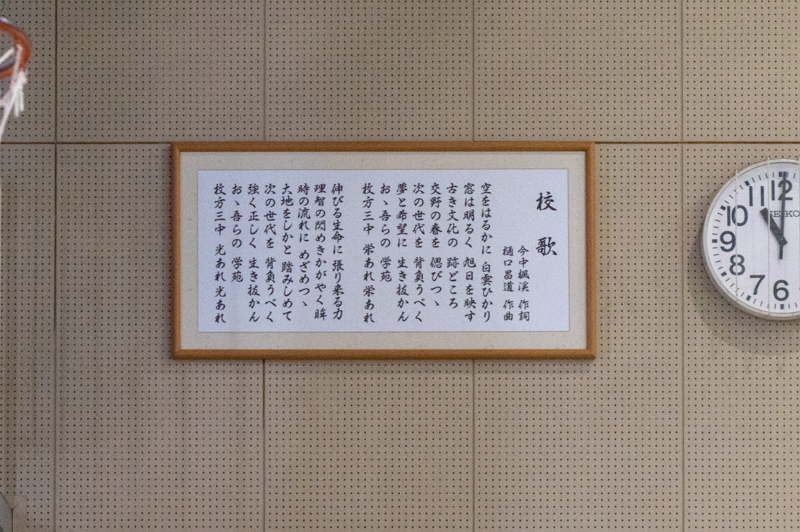 校歌
今中楓渓 作詞
樋口昌道 作曲
空をはるかに 白雲ひかり
窓は明るく 旭日を映す
古き文化の 跡どころ
交野の春を 偲びつゝ
次の世代を 背負うべく
夢と希望に 生き抜かん
おゝ吾らの 学苑
枚方三中 栄あれ 栄あれ
伸びる生命に 張り来る力
理智の閃めきかがやく眸
時の流れに めざめつゝ
大地をしかと 踏みしめて
次の世代を 背負うべく
強く正しく 生き抜かん
おゝ吾らの 学苑
枚方三中 光あれ 光あれ
SEIKO
12
11
10
9
8
7
6